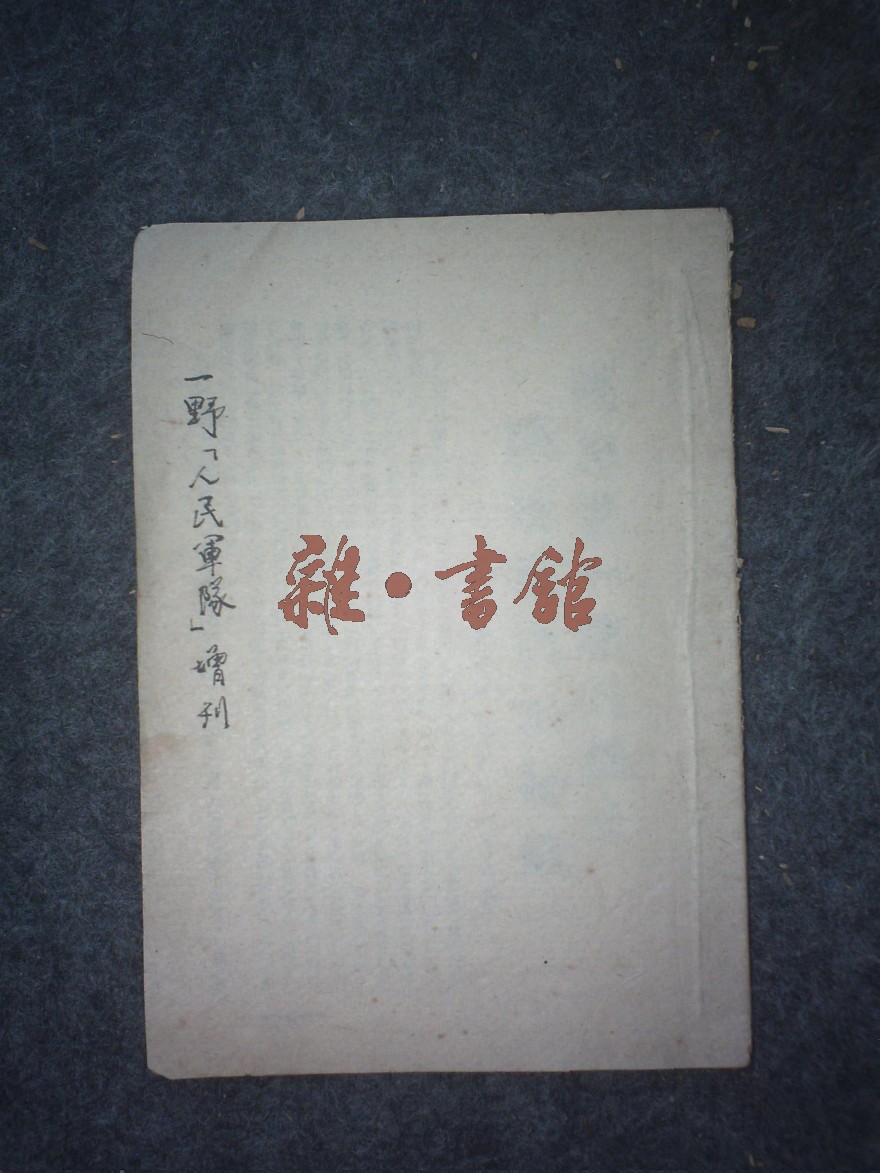 一野「人民軍隊」增刊
雜·書館